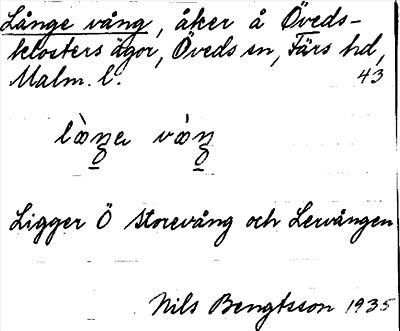 Långe vång, åker å Öveds-
klosters ägor, Öveds sn, Färs hd,
Malm. l. 43
Ligger Ö Storevång och Lervången
Nils Bengtsson 1935